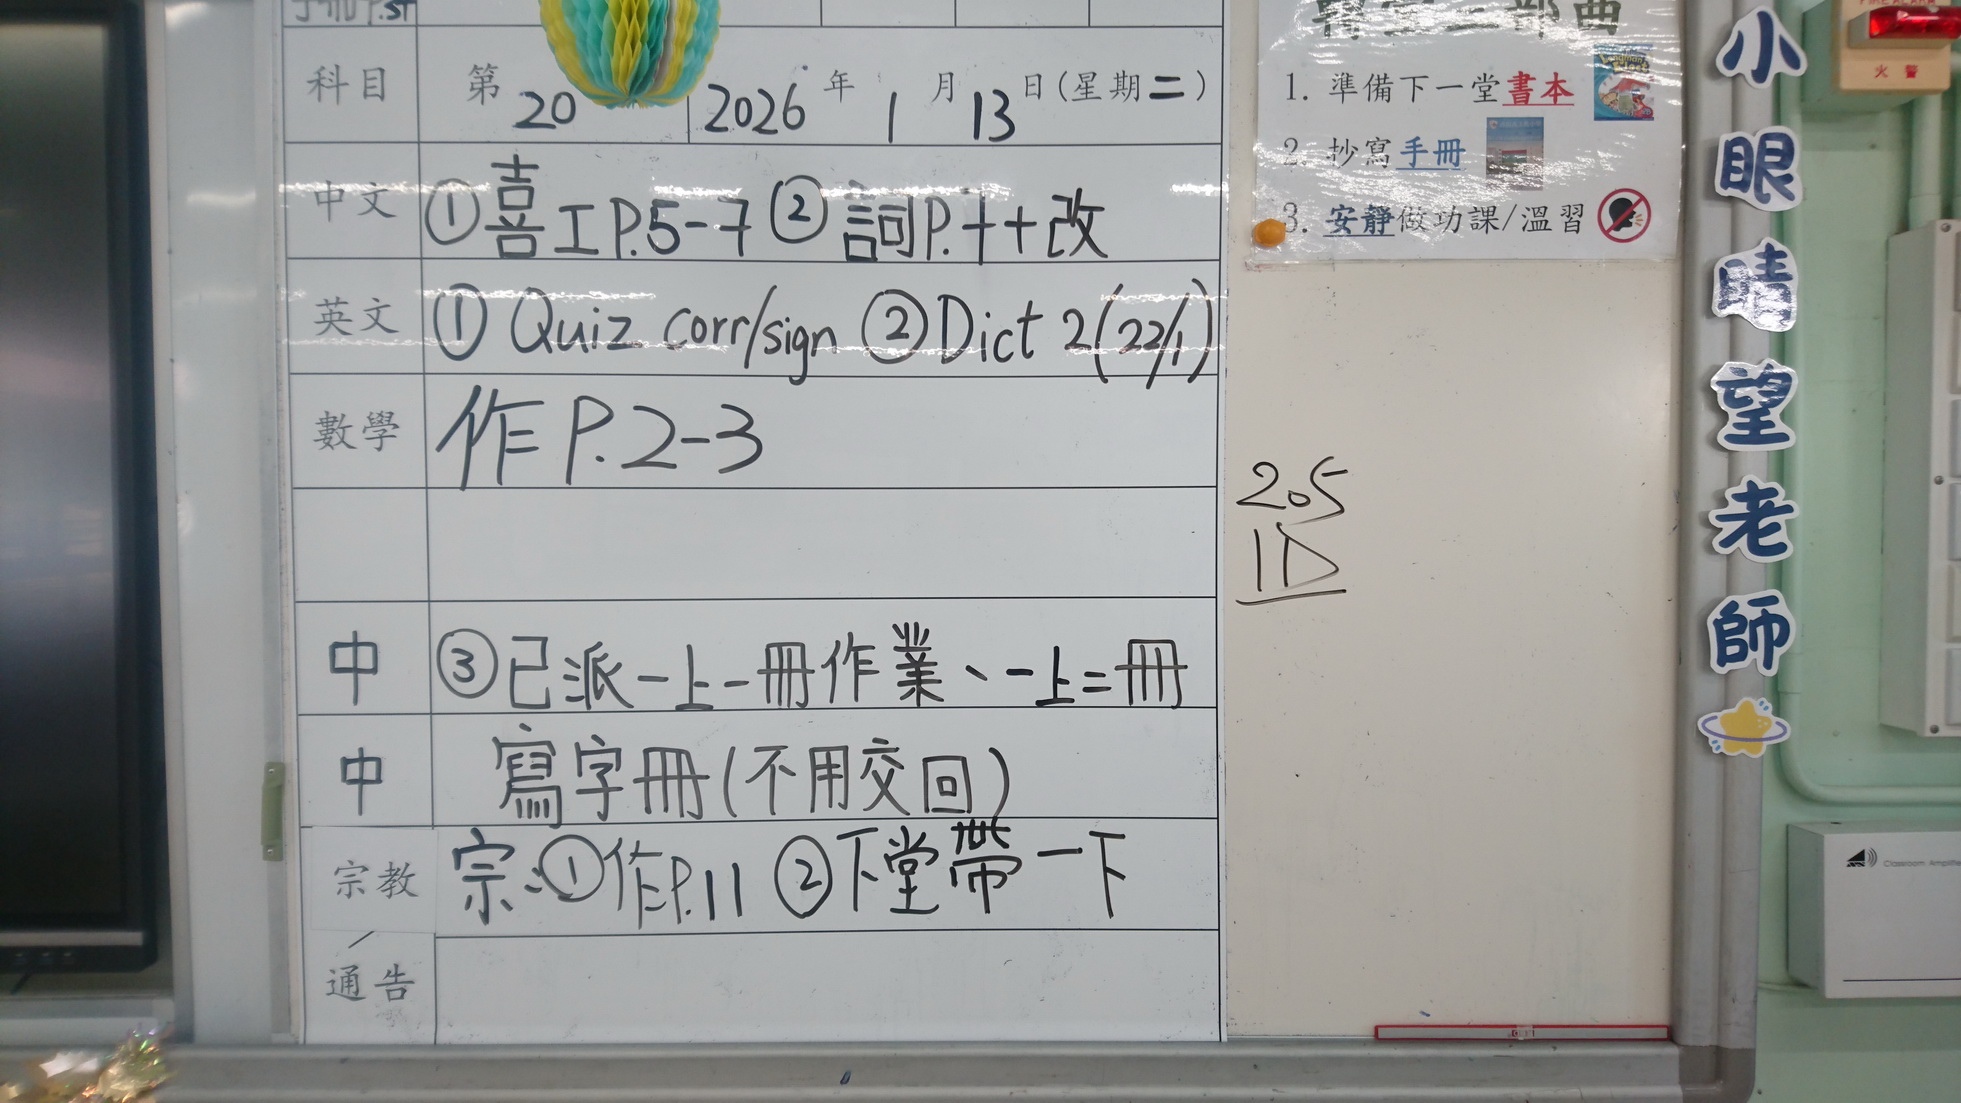 科目 第 20 2026 年 1 月 13 日(星期二)
中文 ①喜工P.5-7 ②詞P.++改
英文 ① Quiz corr/sign ②Dict 2(22/1)
數學 作 P.2-3
中 ③已派一上一冊作業、一上二冊
中 寫字冊(不用交回)
宗教 宗:①作P.11 ②下堂帶一下
通告
1. 準備下一堂書本
2. 抄寫手冊
3. 安靜做功課/溫習
205
1D
小眼睛望老師
FIRE ALARM
火警
Classroom Amplifie